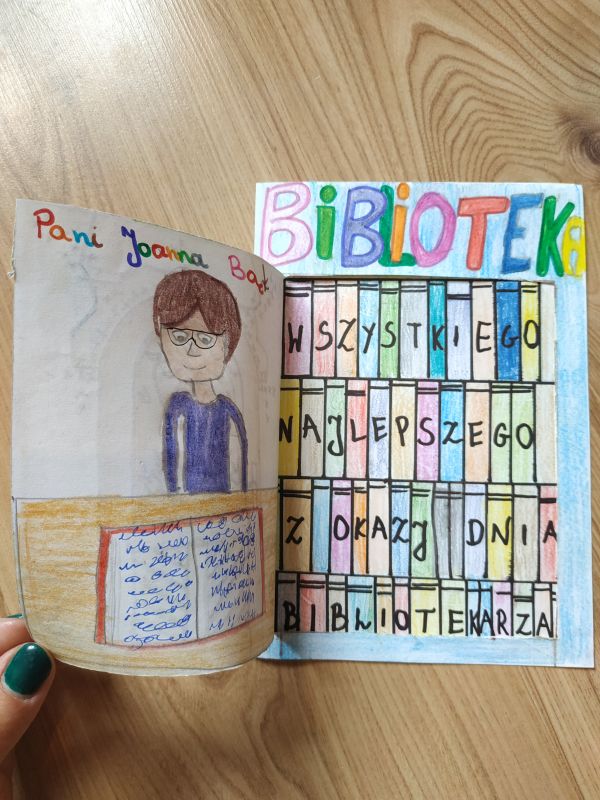 Pani Joanna Bąk
BIBLIOTEKA
WSZYSTKIEGO
NAJLEPSZEGO
Z OKAZJ DNIA
BIBLIOTEKARZA